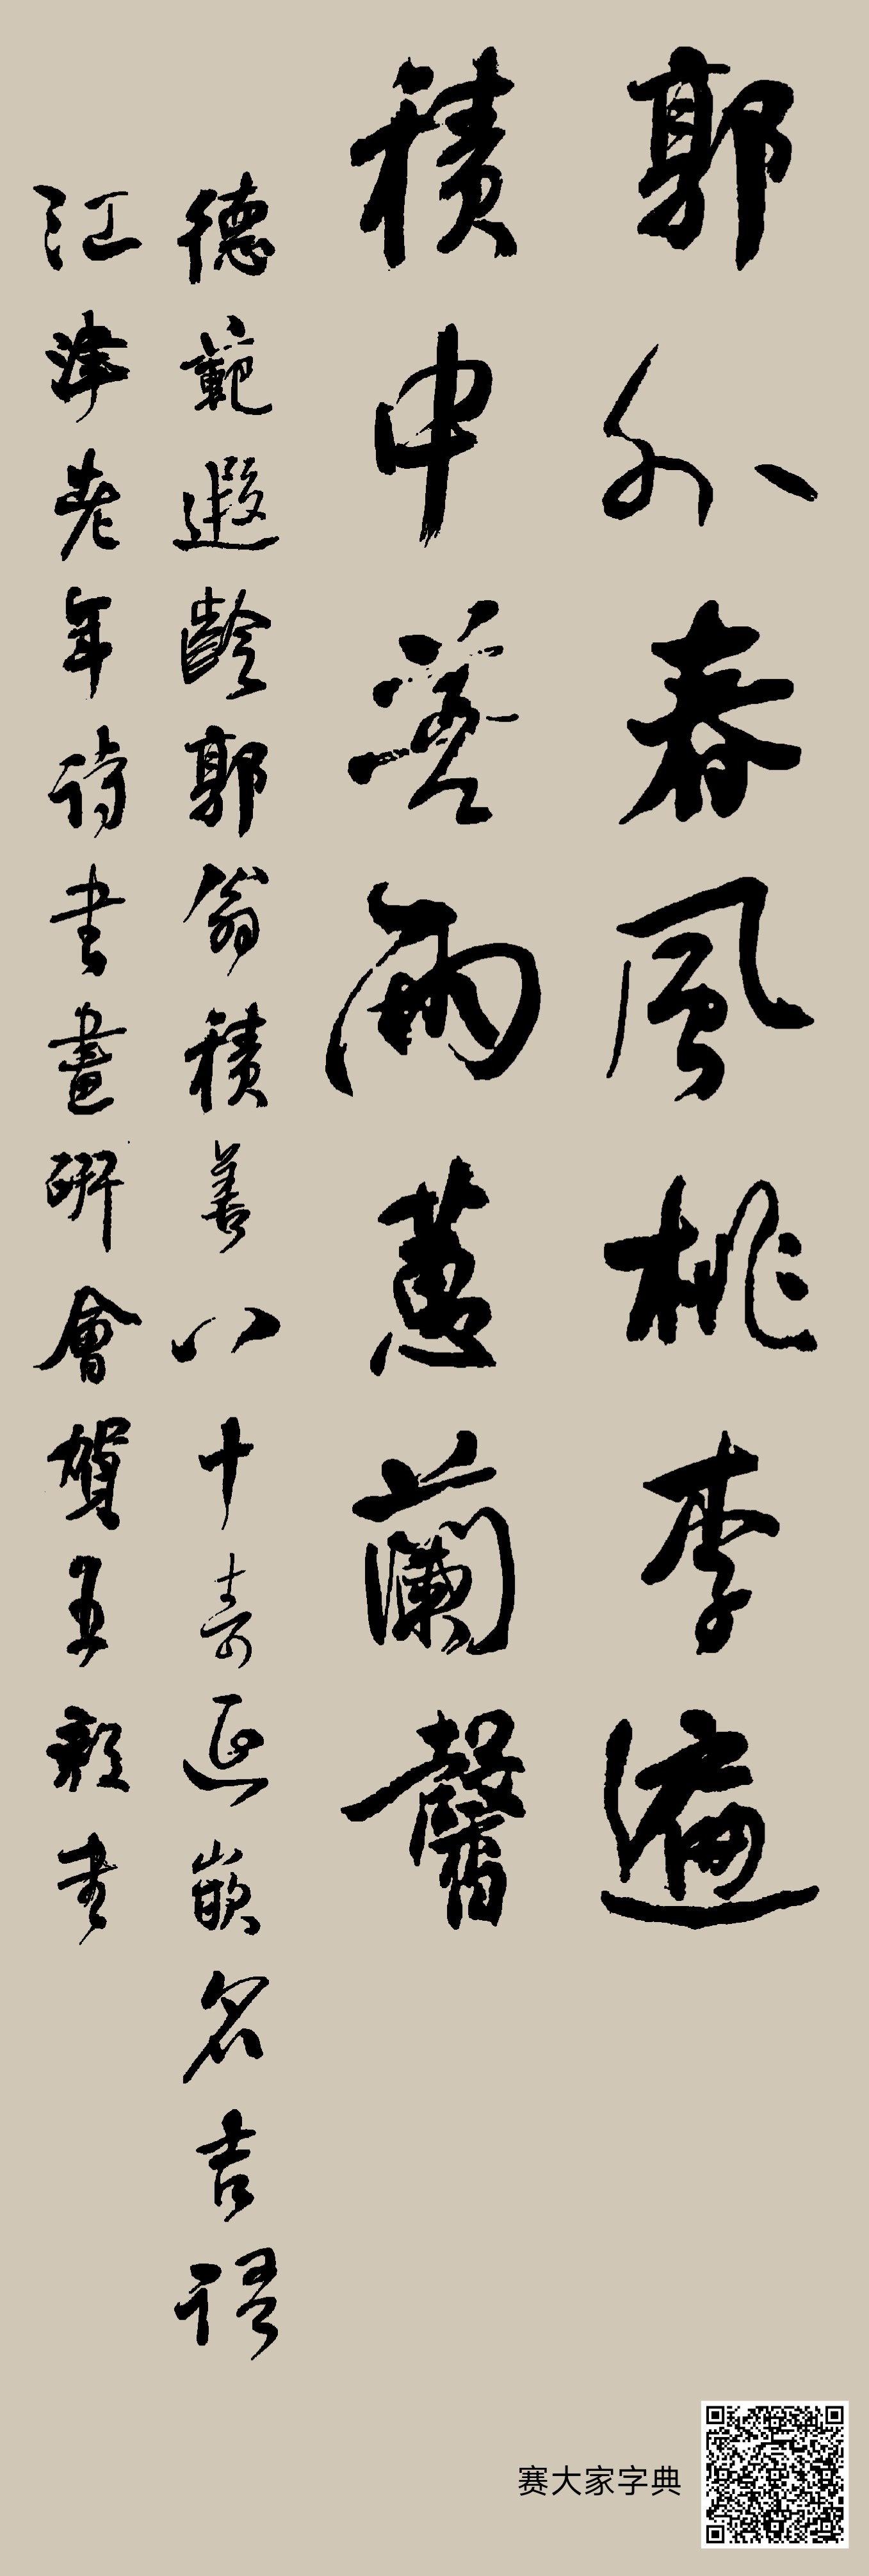 郭外春風桃李遍
積中善雨蕙蘭馨
德範遐齡郭翁積善八十壽延嵌名吉語
江津老年詩書畫研會賀王書
赛大家字典